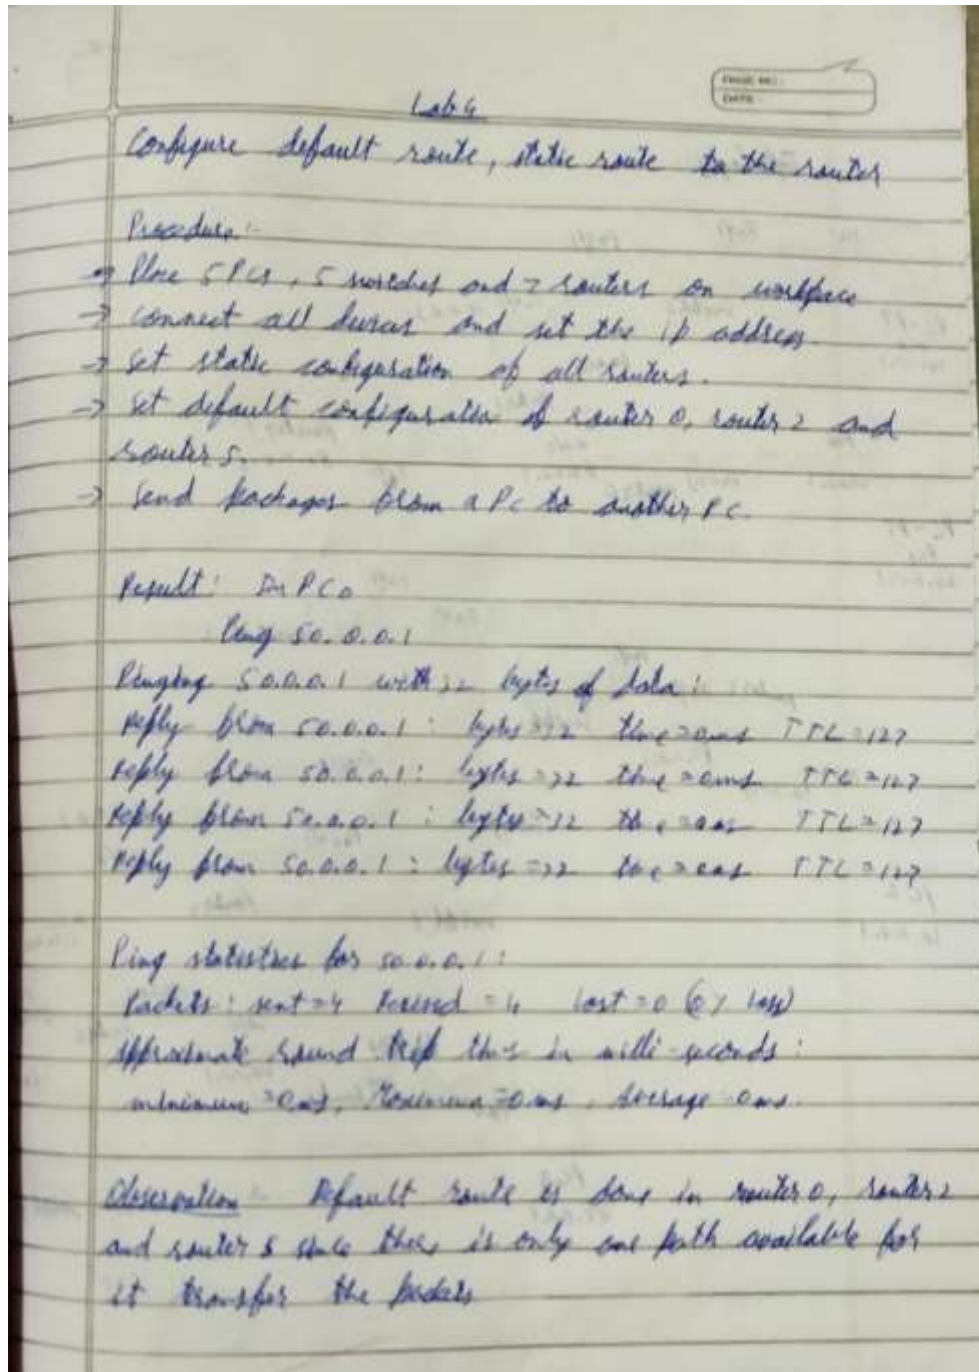 PAGE NO.:
DATE:
Lab 4
Configure default route, static route to the router
Procedure:-
→ Place 5 PCs, 5 switches and 7 routers on workplace
→ connect all devices and set the ip address.
→ set static configuration of all routers.
→ set default configuration of router 0, router 2 and
router 5.
→ send packages from a PC to another PC.
Result: In PC0
Ping 50.0.0.1
Pinging 50.0.0.1 with 32 bytes of data:
Reply from 50.0.0.1: bytes=32 time=0ms TTL=127
Reply from 50.0.0.1: bytes=32 time=0ms TTL=127
Reply from 50.0.0.1: bytes=32 time=0ms TTL=127
Reply from 50.0.0.1: bytes=32 time=0ms TTL=127
Ping statistics for 50.0.0.1:
Packets: sent=4 Received=4 Lost=0 (0% loss)
Approximate round trip times in milli-seconds:
minimum=0ms, Maximum=0ms, Average 0ms.
Observation Default route is done in router 0, router 2
and router 5 since there is only one path available for
it transfer the packets